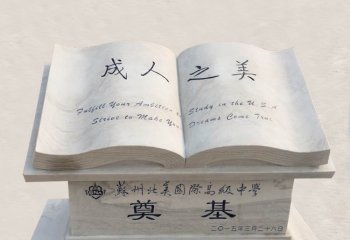 成人之美
Fulfill Your Ambition
Study in the U.S.A
Strive to Make You
Dreams Come True
蘇州北美國際高級中學
奠基
二〇一五年三月二十八日